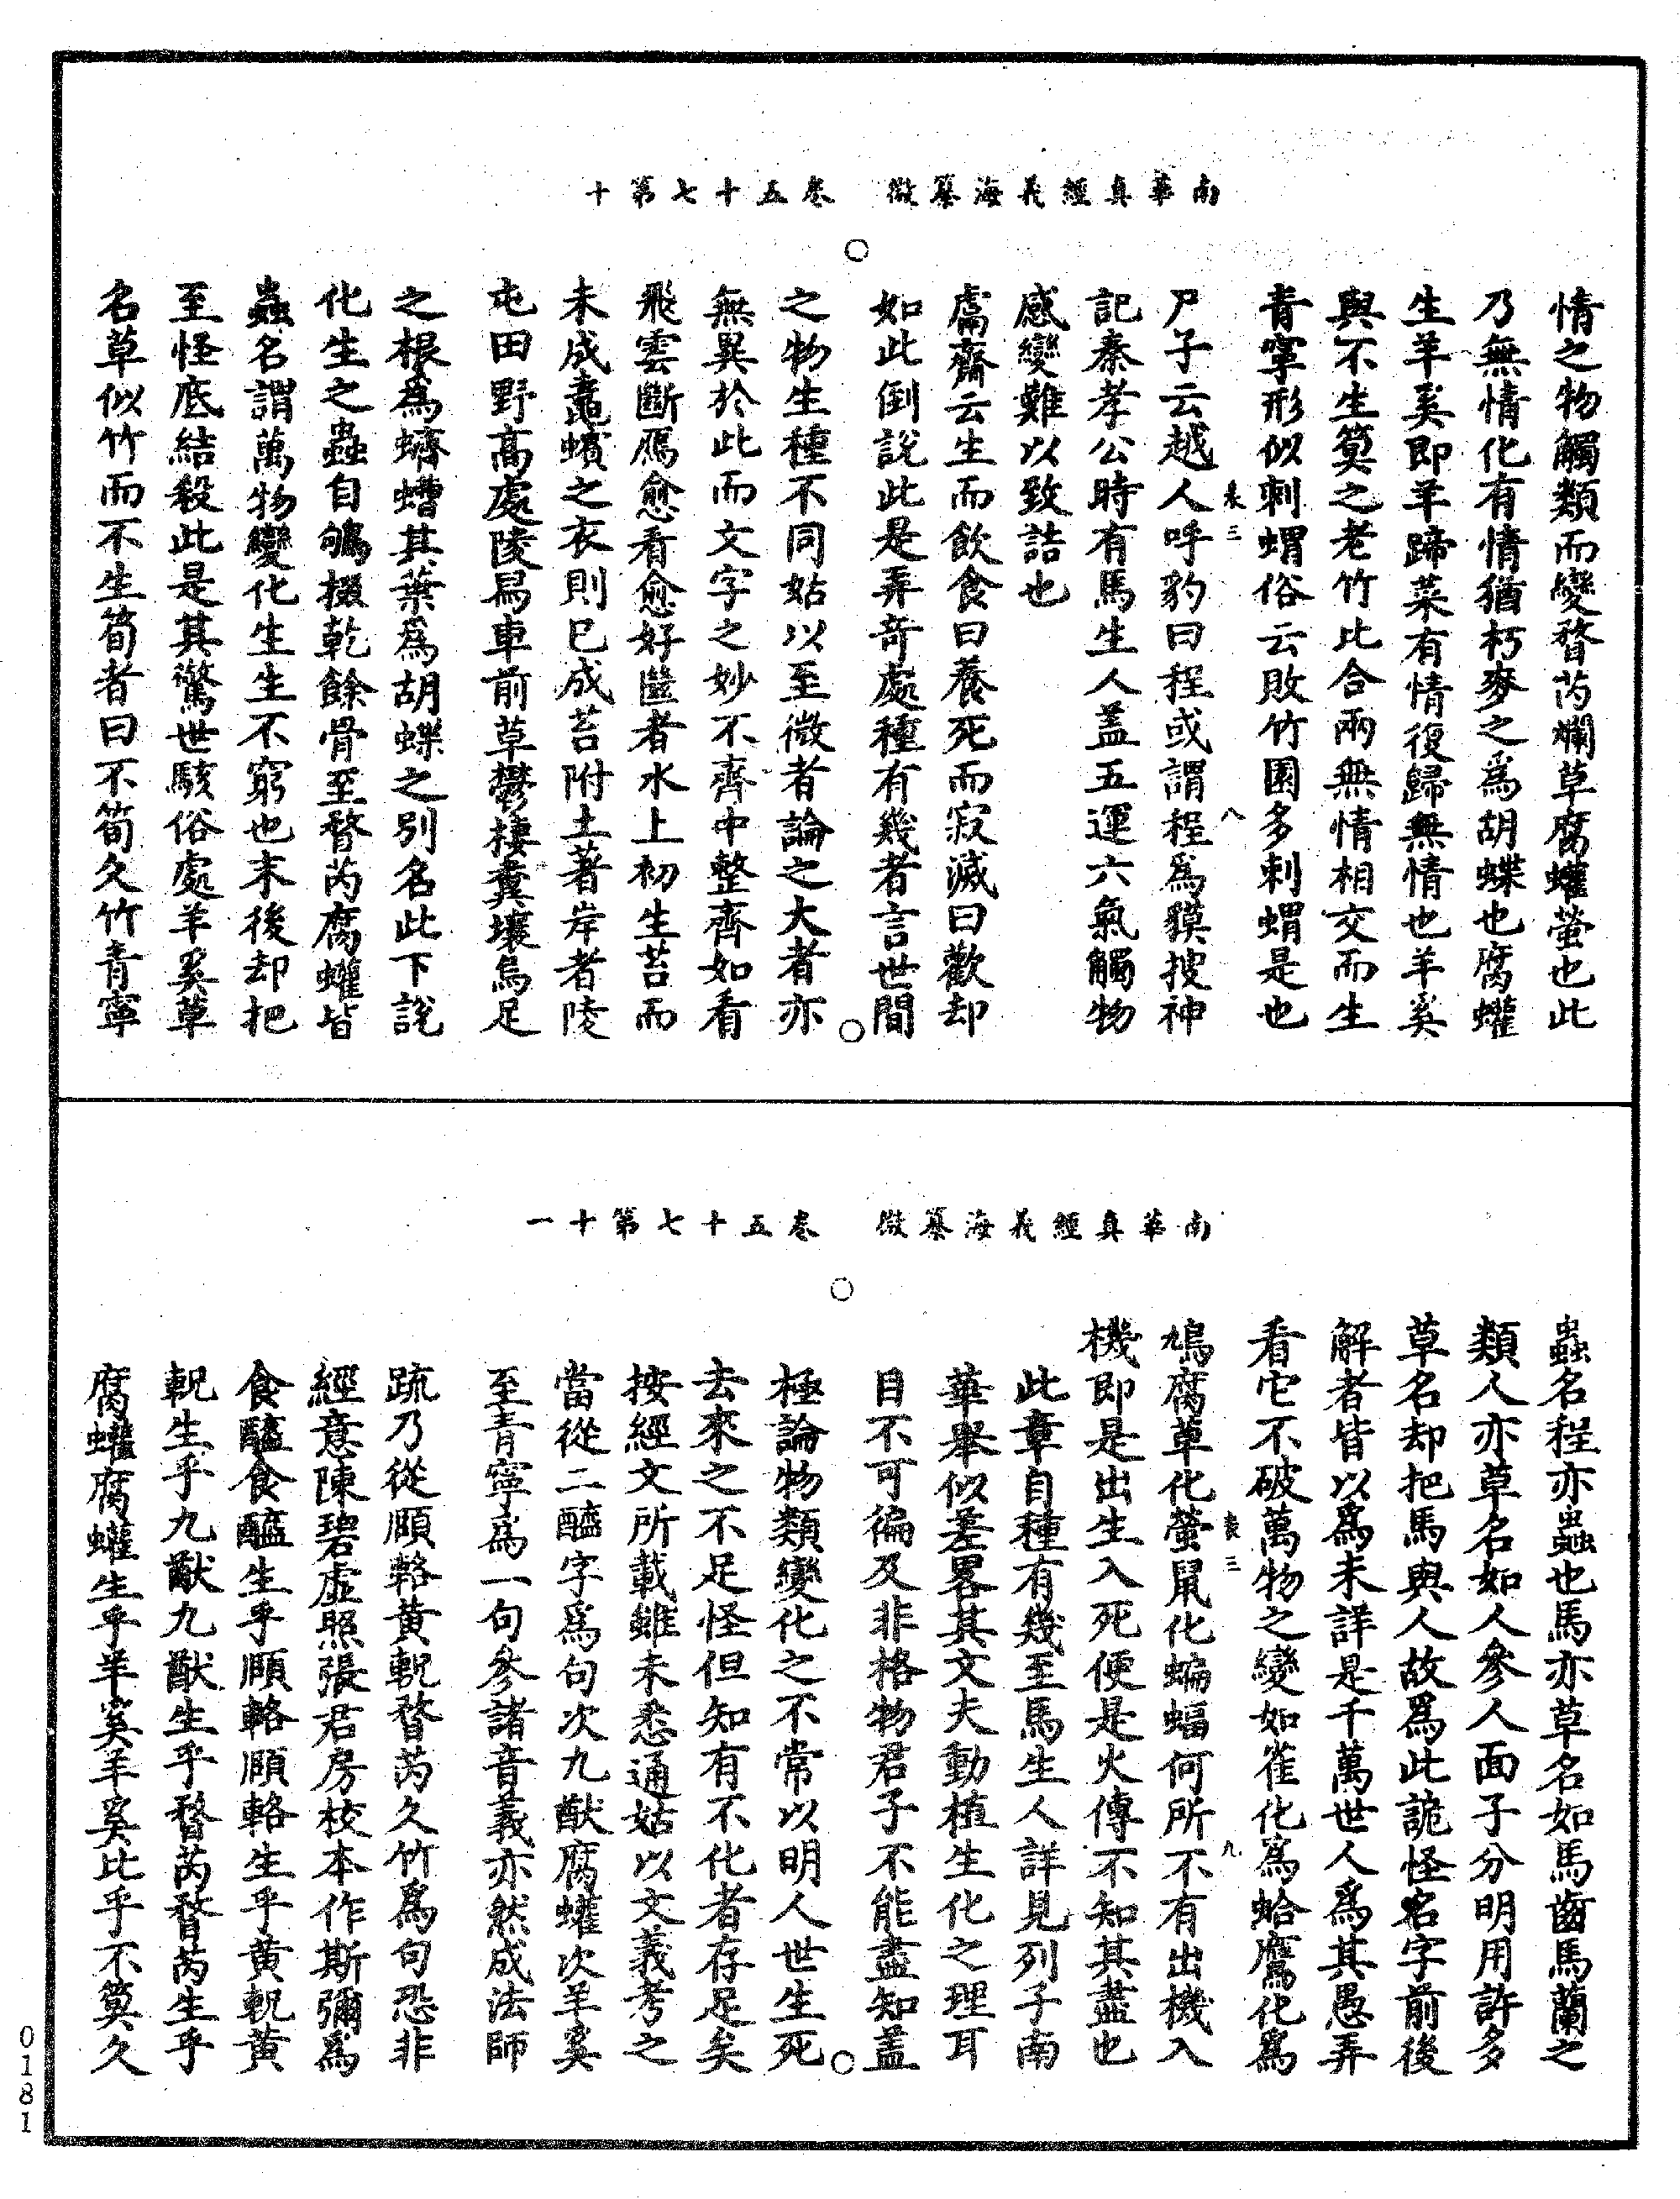 南華真經義海纂微 卷五十七第十
情之物觸類而變瞀芮爛草腐蠸螢也此
乃無情化有情猶朽麥之爲胡蝶也腐蠸
生羊奚即羊蹄菜有情復歸無情也羊奚
與不生筍之老竹比合兩無情相交而生
青寧形似刺蝟俗云敗竹園多刺蝟是也
表三 八
尸子云越人呼豹曰程或謂程爲貘搜神
記秦孝公時有馬生人蓋五運六氣觸物
感變難以致詰也
鬳齋云生而飲食曰養死而寂滅曰歡却
如此倒說此是弄奇處種有幾者言世間
之物生種不同姑以至微者論之大者亦
無異於此而文字之妙不齊中整齊如看
飛雲斷鴈愈看愈好㡭者水上初生苔而
未成鼃蠙之衣則已成苔附土著岸者陵
屯田野高處陵舄車前草鬱棲糞壤烏足
之根爲蠐螬其葉爲胡蝶之別名此下說
化生之蟲自鴝掇乾餘骨至瞀芮腐蠸皆
蟲名謂萬物變化生生不窮也末後却把
至怪底結殺此是其驚世駭俗處羊奚草
名草似竹而不生筍者曰不筍久竹青寧
南華真經義海纂微 卷五十七第十一
蟲名程亦蟲也馬亦草名如馬齒馬蘭之
類人亦草名如人參人面子分明用許多
草名却把馬與人故爲此詭怪名字前後
解者皆以爲未詳是千萬世人爲其愚弄
看它不破萬物之變如雀化爲蛤鷹化爲
表三 九
鳩腐草化螢鼠化蝙蝠何所不有出機入
機即是出生入死便是火傳不知其盡也
此章自種有幾至馬生人詳見列子南
華舉似差畧其文夫動植生化之理耳
目不可徧及非格物君子不能盡知蓋
極論物類變化之不常以明人世生死
去來之不足怪但知有不化者存足矣
按經文所載雖未悉通姑以文義考之
當從二醯字爲句次九猷腐蠸次羊奚
至青寧爲一句參諸音義亦然成法師
疏乃從頤輅黃軦瞀芮久竹爲句恐非
經意陳碧虛照張君房校本作斯彌爲
食醯食醯生乎頤輅頤輅生乎黃軦黃
軦生乎九猷九猷生乎瞀芮瞀芮生乎
腐蠸腐蠸生乎羊奚羊奚比乎不筍久
0181